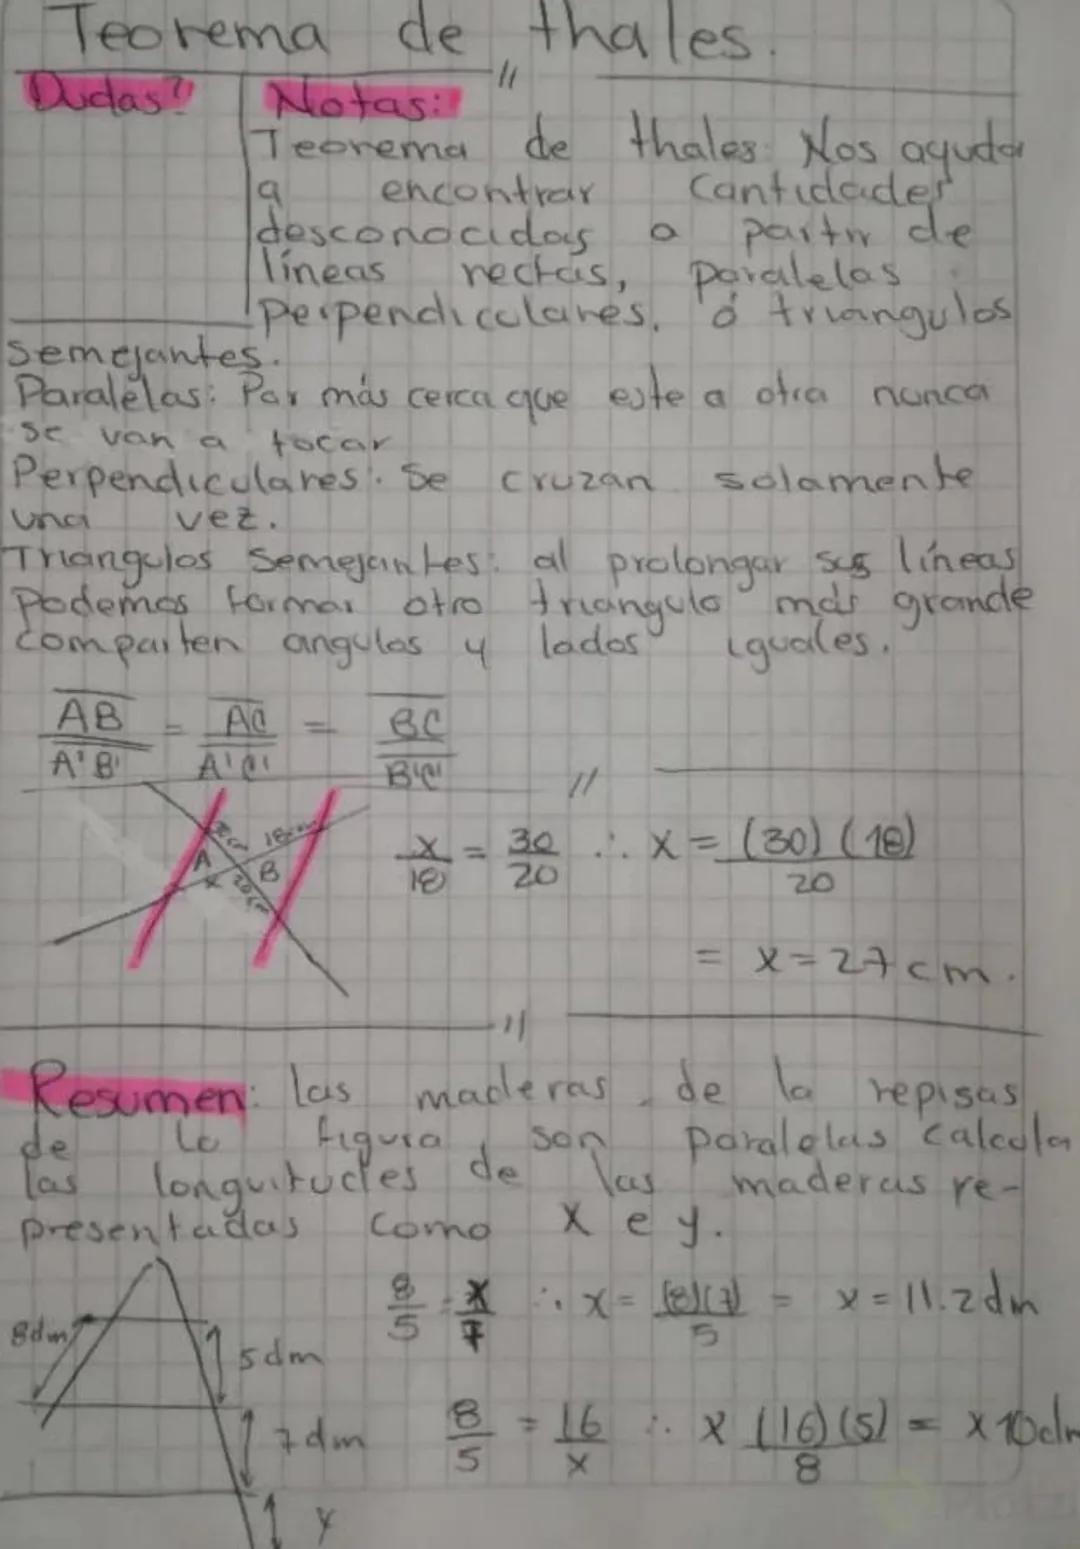 Teorema de thales.
Dudas?
Notas:
Teorema de thales Nos ayuda
a encontrar Cantidades
desconocidas a partir de
líneas rectas, paralelas
perpendiculares, ó triangulos
semejantes.
Paralelas: Por más cerca que este a otra nunca
se van a tocar
Perpendiculares: Se cruzan solamente
una vez.
Triangulos Semejantes: al prolongar sus líneas
Podemos formar otro triangulo más grande
comparten angulos y lados iguales.
AB/A'B' = AC/A'C' = BC/B'C'
18cm
A B
x 20cm
x/18 = 30/20 ∴ x = (30)(18)/20
= x = 27 cm.
Resumen: las maderas de la repisas
de la figura son paralelas calcula
las longuitudes de las maderas re-
presentadas como x e y.
8/5 = x/7 ∴ x = (8)(7)/5 = x = 11.2 dm
8dm
5dm
7dm
8/5 = 16/x ∴ x (16)(5)/8 = x 10dm
y